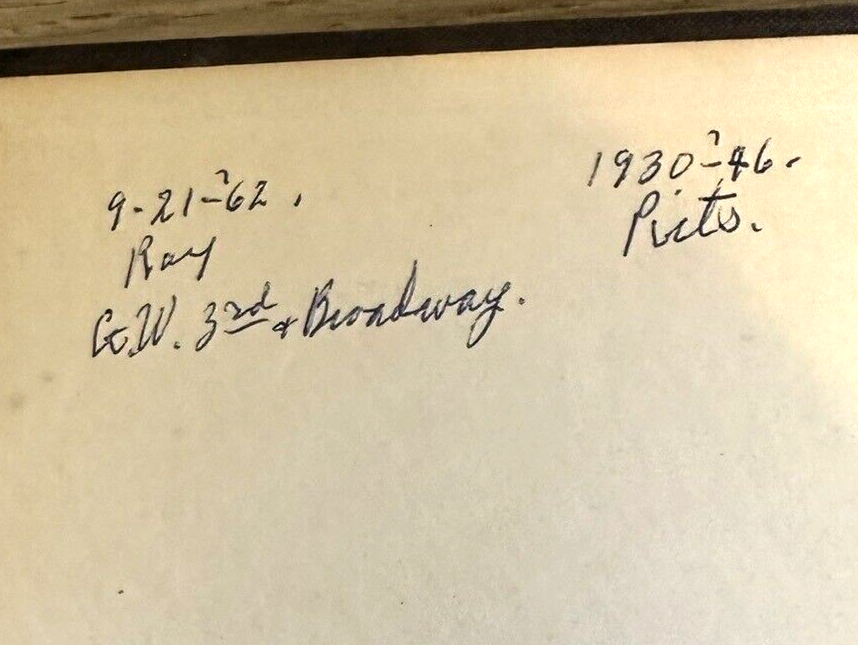 9-21-'62.
Ray
G.W. 3rd & Broadway.
1930-'46.
Picts.